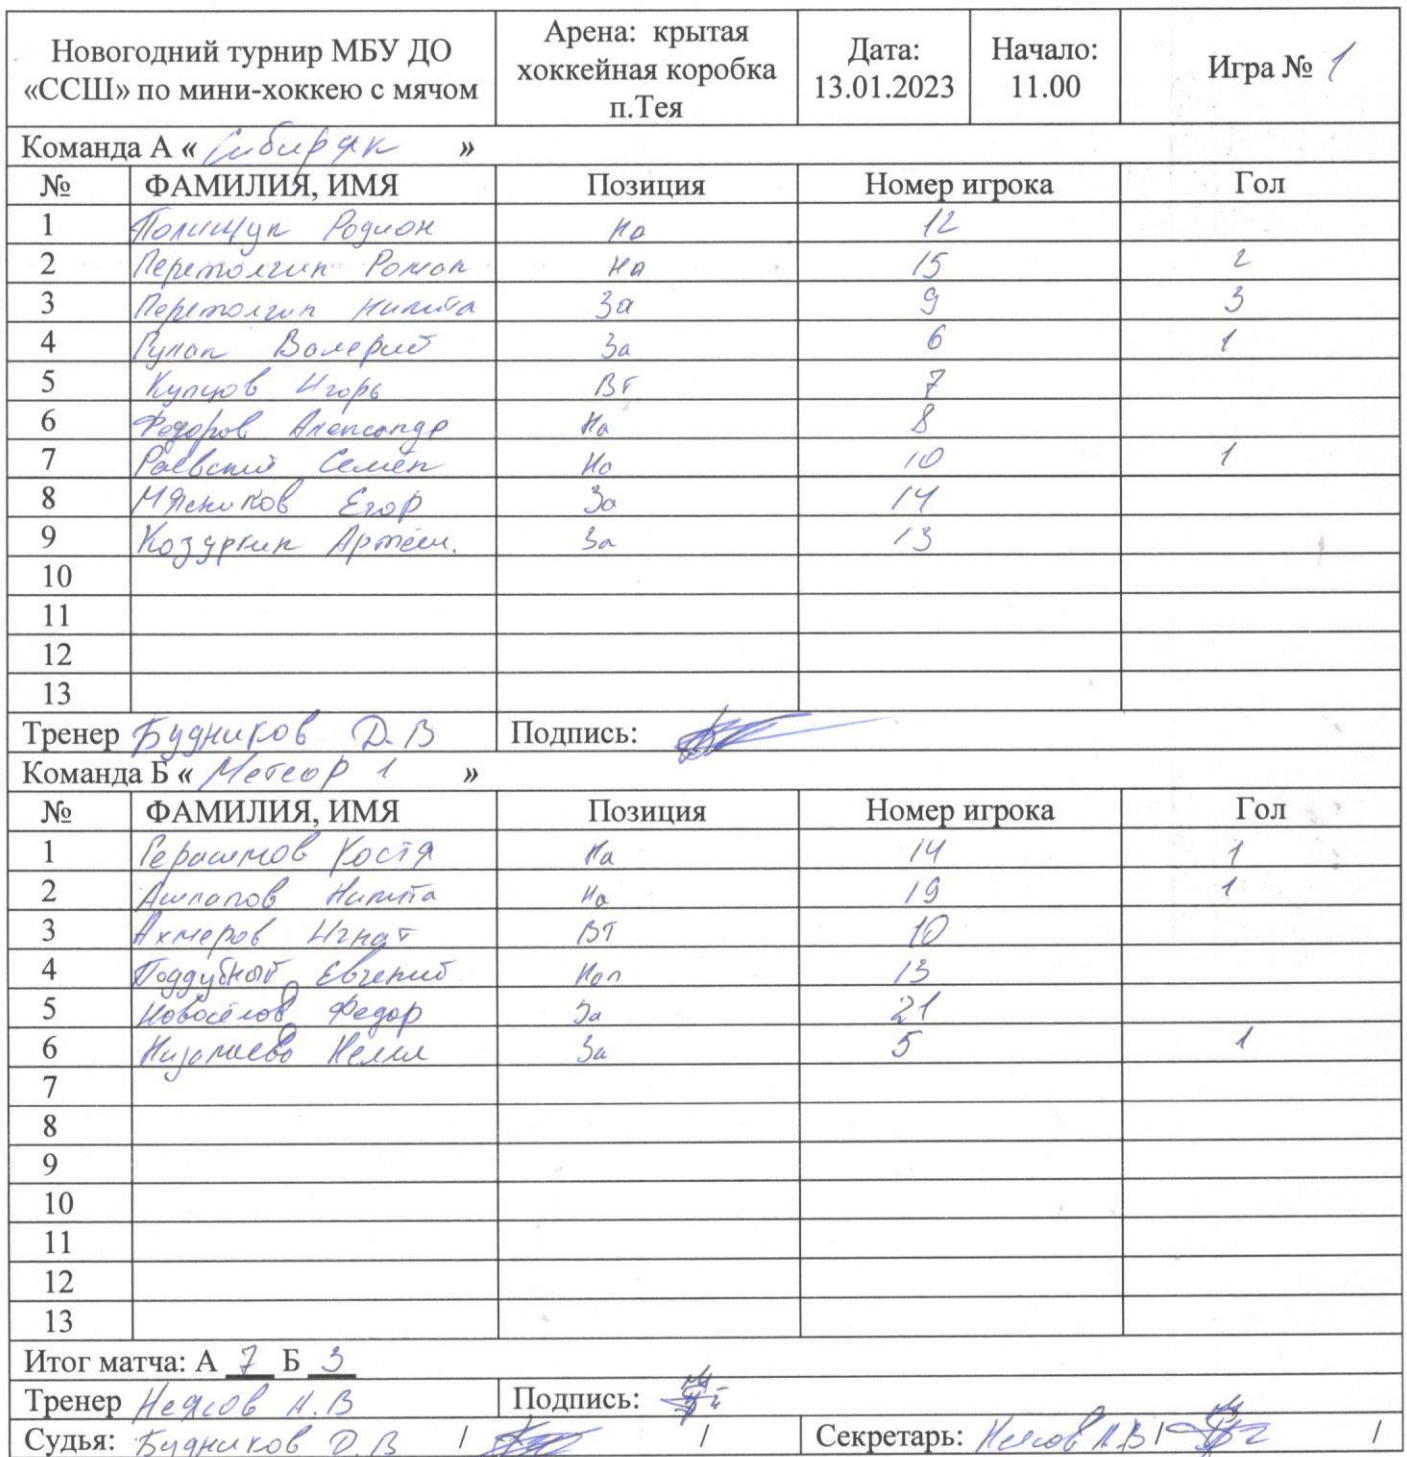 Новогодний турнир МБУ ДО «ССШ» по мини-хоккею с мячом Арена: крытая хоккейная коробка п.Тея Дата: 13.01.2023 Начало: 11.00 Игра № 1
Команда А « Сибиряк »
№ ФАМИЛИЯ, ИМЯ Позиция Номер игрока Гол
1 Полищук Родион На 12
2 Перетолгин Роман На 15 2
3 Перетолгин Никита За 9 3
4 Гулан Валерий За 6 1
5 Купцов Игорь ВТ 7
6 Федоров Александр На 8
7 Раевский Семён На 10 1
8 Мясников Егор За 14
9 Козуркин Артём. За 13
10
11
12
13
Тренер Будников Д.В Подпись:
Команда Б « Метеор 1 »
№ ФАМИЛИЯ, ИМЯ Позиция Номер игрока Гол
1 Герасимов Костя На 14 1
2 Ашпапов Никита На 19 1
3 Ахмеров Игнат ВТ 10
4 Поддубный Евгений Нап 13
5 Новосёлов Федор За 21
6 За 5 1
7
8
9
10
11
12
13
Итог матча: А 7 Б 3
Тренер Н.В Подпись:
Судья: Будников Д.В / / Секретарь: Н.В / /